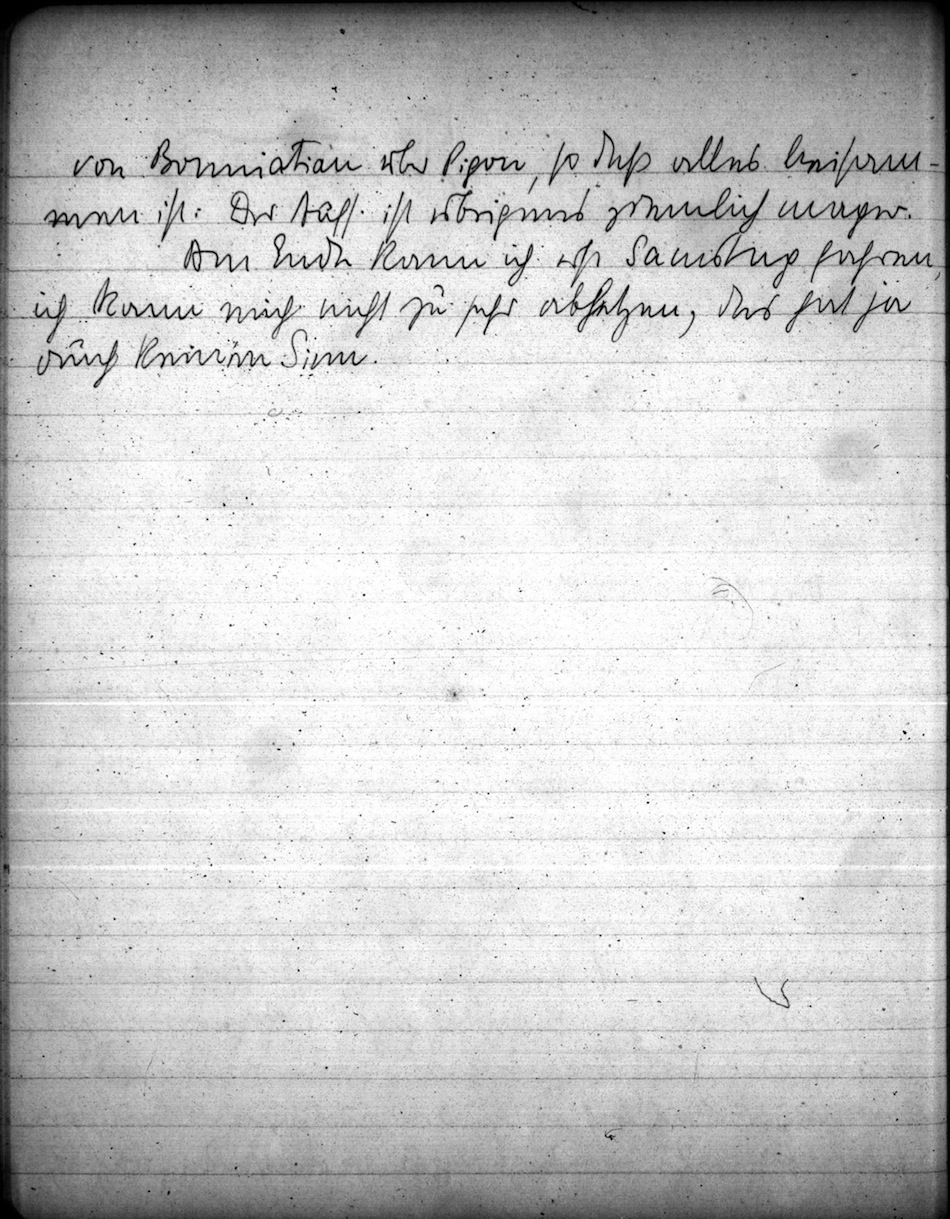 von Bouniatian über Pigou, so daß alles beisam-
men ist. Der Aufs. ist übrigens ziemlich mager.
Am Ende kann ich erst Samstag fahren,
ich kann mich nicht zu sehr abhetzen, das hat ja
auch keinen Sinn.